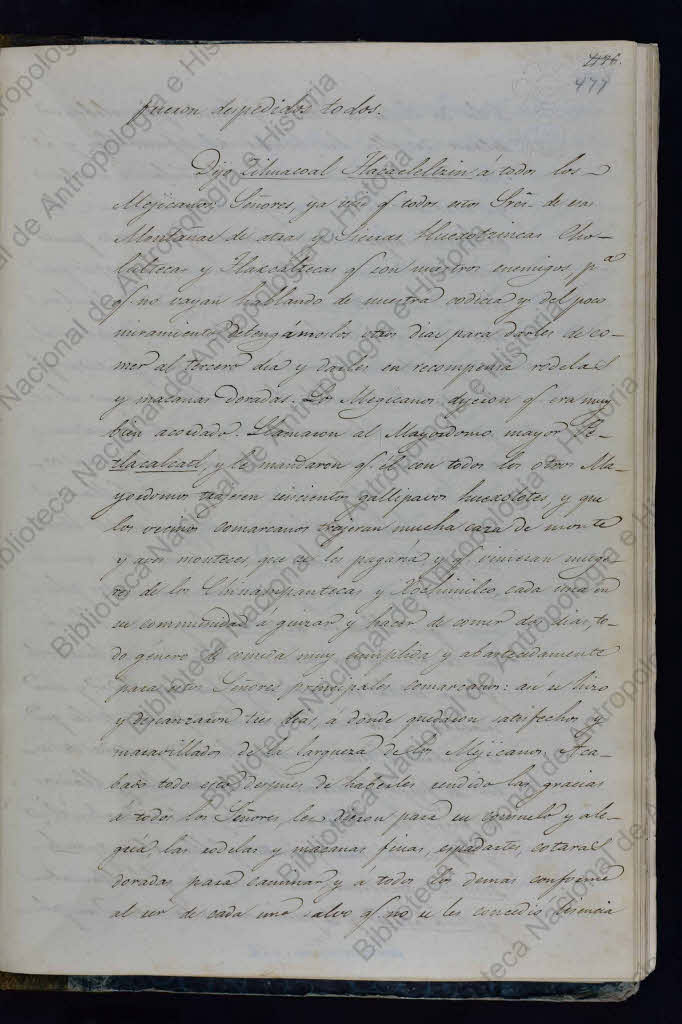 477
fueron despedidos todos.
Dijo Zihuacoal Tlacaeleltzin á todos los
Mejicanos, Señores, ya veis q.e todos estos Sres. de esas
Montañas de atras y Sierras, Huexotzincas Cho-
lultecas y Tlaxcaltecas q.e son nuestros enemigos, p.a
q.e no vayan hablando de nuestra codicia y del poco
miramiento detengámoslos otros dias para darles de co-
mer al tercero dia y darles en recompensa rodelas
y macanas doradas. Los Megicanos dijeron q.e era muy
bien acordado. Llamaron al Mayordomo mayor Pe-
tlacalcatl, y le mandaron q.e él con todos los otros Ma-
yordomos trajesen seiscientos gallipavos huexolotes, y que
los vecinos comarcanos trajeran mucha caza de monte
y aves monteces, que se les pagaria y q.e vinieran muge-
res de los Chinampanecas y Xochimilco, cada una en
su communidad a guizar y hacer de comer dos dias, to-
do género de comida muy cumplida y abastecidamente
para estos Señores principales comarcanos: así se hizo
y descanzaron tres dias, á donde quedaron satisfechos y
maravillados de la largueza de los Mejicanos. Aca-
bado todo esto despues de haberles rendido las gracias
á todos los Señores, les dieron para su consuelo y ale-
gría, las rodelas y macanas finas, espadartes, cotaras
doradas para caminar, y á todos los demas conforme
al ser de cada uno salvo q.e no se les concedio licencia
Biblioteca Nacional de Antropología e Historia